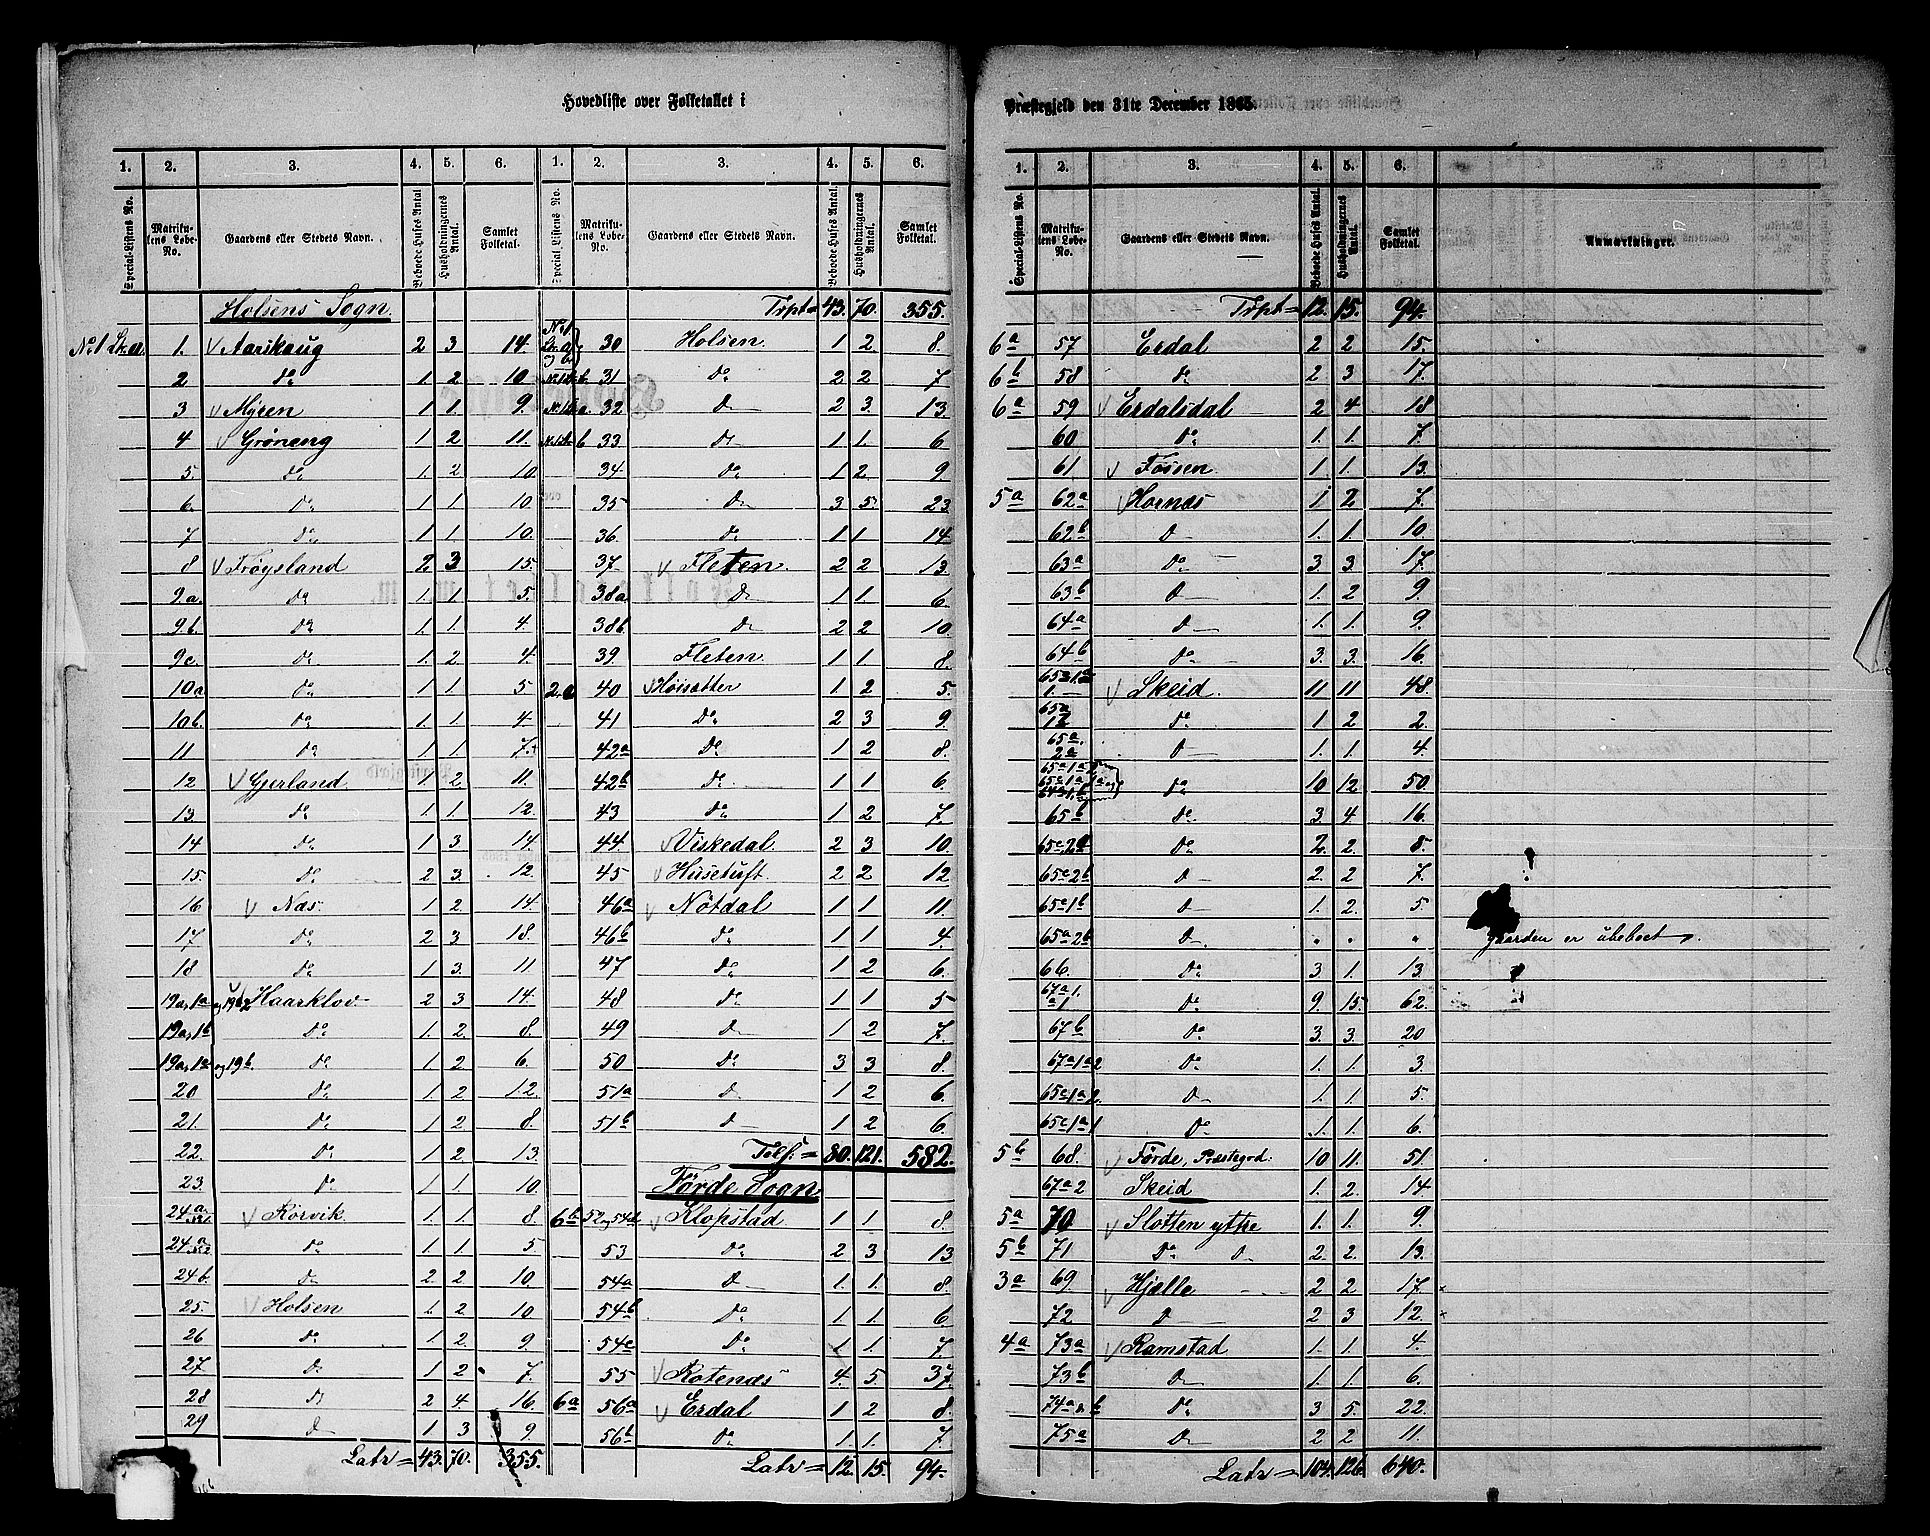 Hovedliste over Folketallet i
1. 2. 3. 4. 5. 6. 1. 2. 3. 4. 5. 6.
Special-Listens No. Matrikulens Løbe-No. Gaardens eller Stedets Navn. Beboede Huses Antal Husholdningernes Antal. Samlet Folketal. Special Listens No. Matrikulens Løbe-No. Gaardens eller Stedets Navn. Beboede Huses Antal. Husholdningernes Antal. Samlet Folketal.
Holsens Sogn.
No 1 Litr a. 1. Aarskaug 2 3 14.
2 Do 1. 2. 10
3 Myren 1 1. 9.
4 Grøneng 1 2 11.
5. Do 1. 2 10.
6. Do 1 1 10.
7 Do 1 1. 10.
8 Frøysland 2 3 15.
9.a. Do 1. 1 5.
9.b. Do 1. 1. 4.
9c. Do 1. 2. 4.
10a Do 1 1. 5
10b. Do 1. 1. 4.
11 Do 1 1. 7.
12 Gjerland 1. 2 11.
13. Do 1 1. 12.
14 Do 1 3 14.
15. Do 2 3. 12.
16 Næs. 1 2. 14.
17 Do 2 3 18.
18 Do 1 3. 11
19a,1a og 19b2 Haarklov 2 3 14.
19a,1b Do 1. 2. 8.
19a,1a og 19b. Do 1 2 6.
20 Do 1 2 12.
21. Do 1 2 8.
22. Do 1 2 13.
23. Do 1 1. 10.
24.a Rørvik. 1. 1. 8.
24.a Do 1 1 5.
24b. Do 2 2 10.
25. Holsen 1. 2 10
26 Do 1 2. 9
27. Do 1 2 7.
28 Do 2 4 16.
29 Do 1 3. 9.
Latr = 43. 70. 355.
Trpt = 43. 70. 355.
30 Holsen 1 2. 8.
31 Do 2 2 7
32 Do 2 3. 13.
33 Do 1 1. 6
34 Do 1 2. 9
35 Do 3 5. 23
36. Do 1 1 14
37 Fleten. 2 2 13
38a Do 1 1. 6
38b. Do 2 2 10
39. Fleten 1 1. 8.
2.a 40 Høisæter 1. 2 5.
41 Do 2 3 9
42a Do 1 2 8.
42b. Do 1 1 6.
43 Do 1 2 7.
44. Viskedal 2 3 10.
45 Husetuft 2 2 12
46a Nötdal 1 1 11.
46b Do 1 1 4.
47 Do 1 2 6.
48 Do 1 1 5
49 Do 1 2 7.
50 Do 3 3 8.
51a Do 1 2 6.
51b Do 1 2 6.
Tils. = 80. 121. 582.
Førde Sogn
6b 52 og 54d Klopstad 1 1 8.
53 Do 2 3 13
54a Do 1. 1. 8.
54b. Do 1 1 6.
54c Do 1. 1. 7.
55 Rotenæs 4. 5. 37.
6a 56a Erdal 1 2 8.
56b Do 1. 1. 7.
Latr = 12. 15. 94.
Præstegjeld den 31te December 1865.
1. 2. 3. 4. 5. 6.
Special-Listens No. Matrikulens Løbe-No. Gaardens eller Stedets Navn. Beboede Huses Antal. Husholdningernes Antal. Samlet Folketal. Anmærkninger.
Trpt = 12. 15. 94.
6a 57 Erdal 2 2 15.
6b 58 Do 2 3 17.
6a 59 Erdalsdal 2 4 18
60 Do 1. 1. 7.
61 Fossen. 1 1. 13.
5a 62a Hornæs 1 2 7.
62b Do 1. 1. 10
63a Do 3 3. 17.
63b Do 1. 2 9.
64a Do 1. 1. 9.
64b Do 3. 3. 16.
Skeid. 11 11 48.
65a 12 Do 1. 2 2.
65a. 2a Do 1. 1. 4.
Do 10 12. 50.
65b Do 3. 4 16.
65c.2a Do 2. 2. 8.
65c2b Do 2. 2 7.
65a1b Do 1. 2. 5.
65a2b Do " " " Gaarden er ubeboet.
66. Do 3 1. 13.
67a1. a1 Do 9. 15. 62.
67b Do 3. 3. 20
67a1a2 Do 1. 1. 3.
65c1a2. Do 1. 1 5.
65c1a1 Do 1. 1. 6.
5b 68. Førde, Præstegrd. 10 11. 51.
67a2 Skeid 1. 2. 14
5a 70 Slotten yttre 1. 1. 9.
5b 71 Do Do 2. 2. 13.
3a 69 Hjelle 2 2 17.
72 Do 2 3 12.
4a 73a Ramstad 1. 1. 4.
73b Do 1. 1. 6.
74a & b Do 3 5. 22.
75a Do 2 2 11.
Latr = 104. 126. 640.